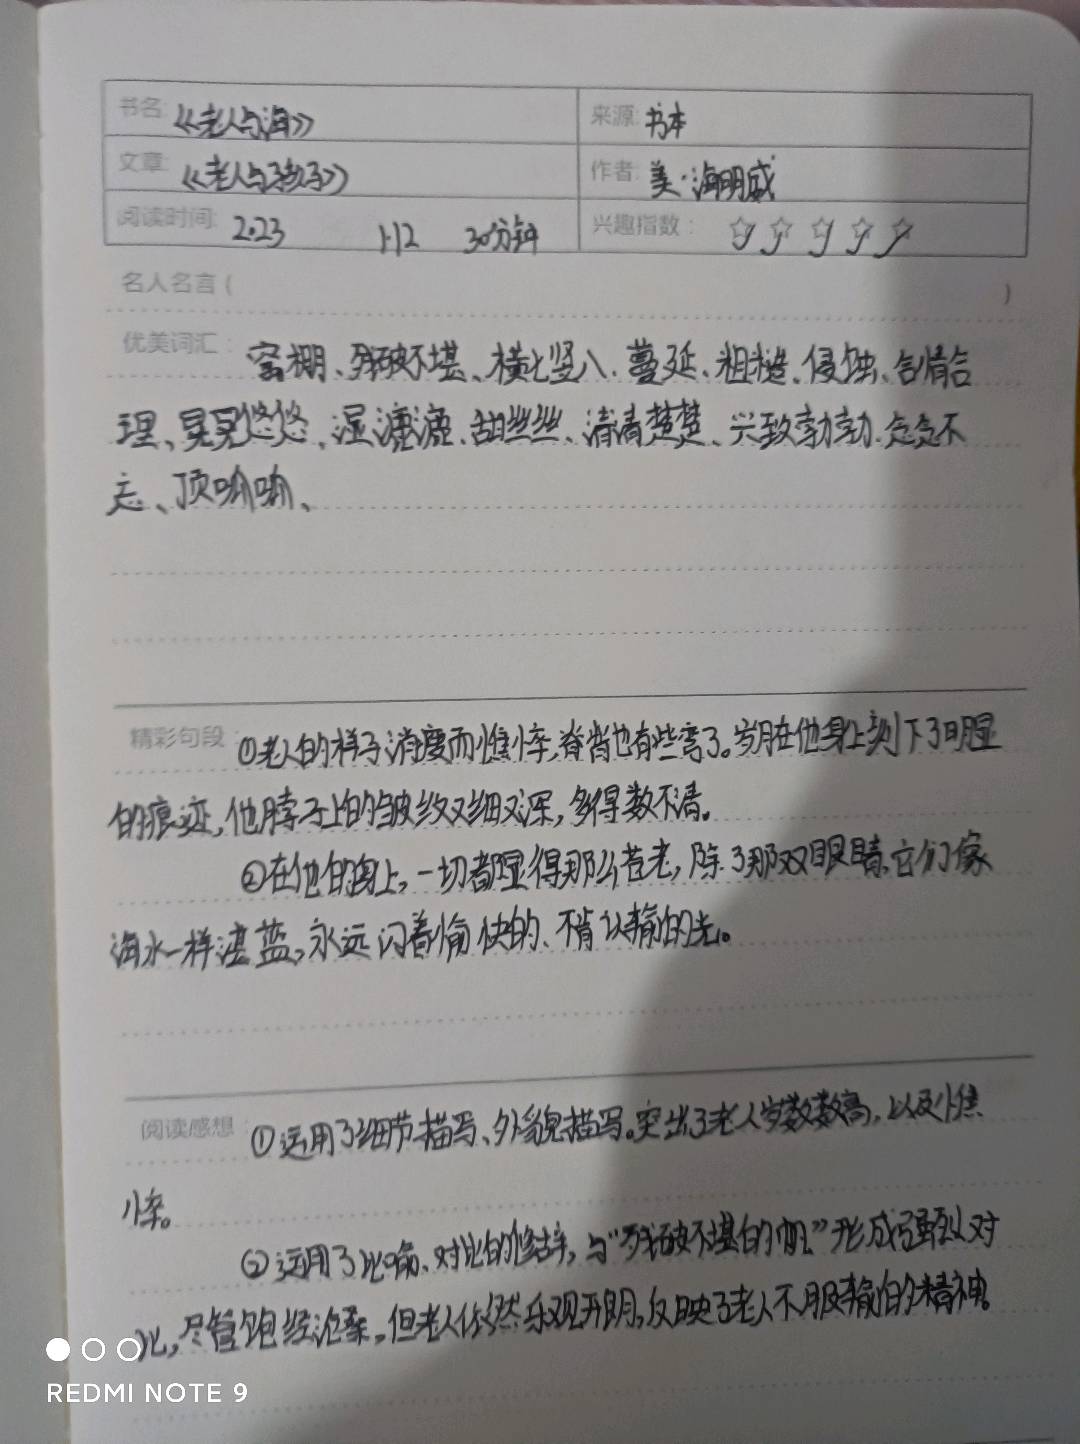 书名: 《老人与海》 来源: 书本
文章: 《老人与孩子》 作者: 美·海明威
阅读时间: 2.23 1.12 30分钟 兴趣指数:
名人名言 ( )
优美词汇: 窝棚、残破不堪、横七竖八、蔓延、粗糙、侵蚀、合情合
理、晃晃悠悠、湿漉漉、甜丝丝、清清楚楚、兴致勃勃、念念不
忘、顶呦呦、
精彩句段: ①老人的样子消瘦而憔悴,脊背也有些弯了。岁月在他身上刻下了明显
的痕迹,他脖子上的皱纹又细又深,多得数不清。
②在他的身上,一切都显得那么苍老,除了那双眼睛,它们像
海水一样湛蓝,永远闪着愉快的、不肯认输的光。
阅读感想: ①运用了细节描写、外貌描写。突出了老人岁数数高,以及憔
悴。
②运用了比喻、对比的修辞,与“残破不堪的帆”形成强烈对
比,尽管饱经沧桑,但老人依然乐观开朗,反映了老人不服输的精神。
REDMI NOTE 9